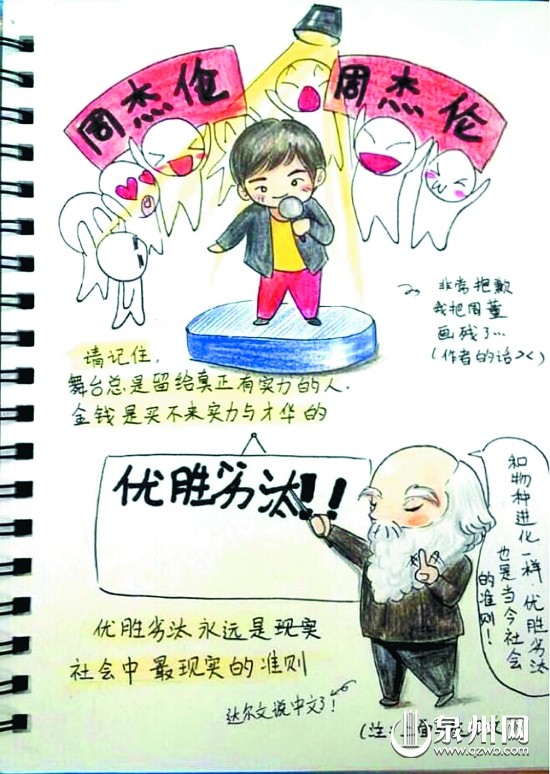 周杰伦
周杰伦
非常抱歉
我把周董
画残了…
(作者的话><)
请记住,
舞台总是留给真正有实力的人.
金钱是买不来实力与才华的
优胜劣汰!!
和物种进化一样 优胜劣汰
也是当今社会
的准则!
优胜劣汰永远是现实
社会中最现实的准则
达尔文说中文了!
(注:上面
泉州网
www.qzwb.com